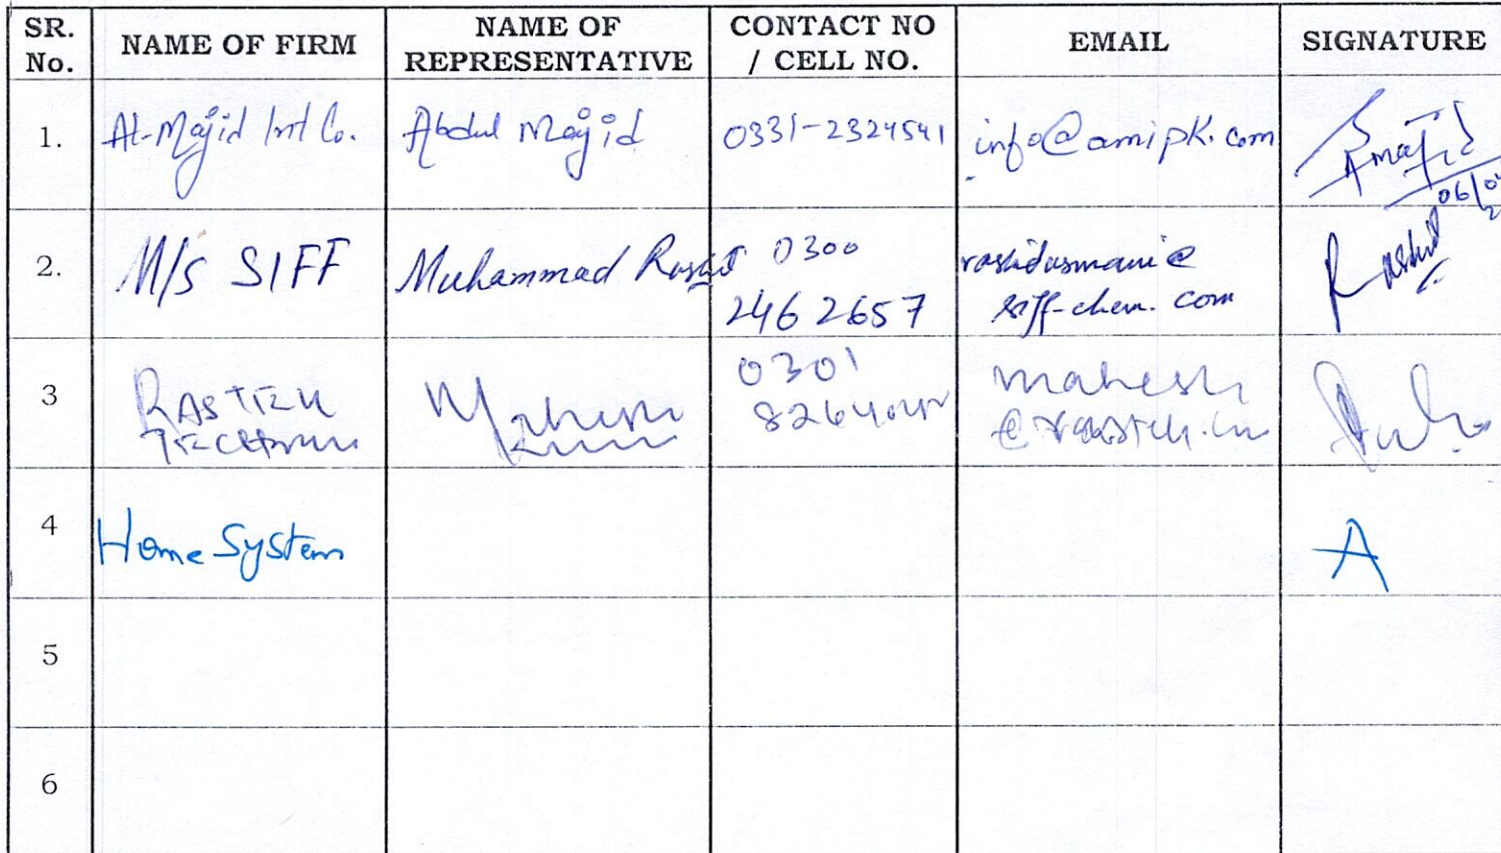 SR. No.
NAME OF FIRM
NAME OF REPRESENTATIVE
CONTACT NO / CELL NO.
EMAIL
SIGNATURE
1. Al-Majid Intl Co. Abdul Majid 0331-2324541 info@amipk.com Amajid
06/0
2. M/s SIFF Muhammad Rashid 0300 rashidusmani@ Rashid
2462657 siff-chem.com
3 RASTEK Mahesh 0301 mahesh
Kumar 8264
4 Home System A
5
6